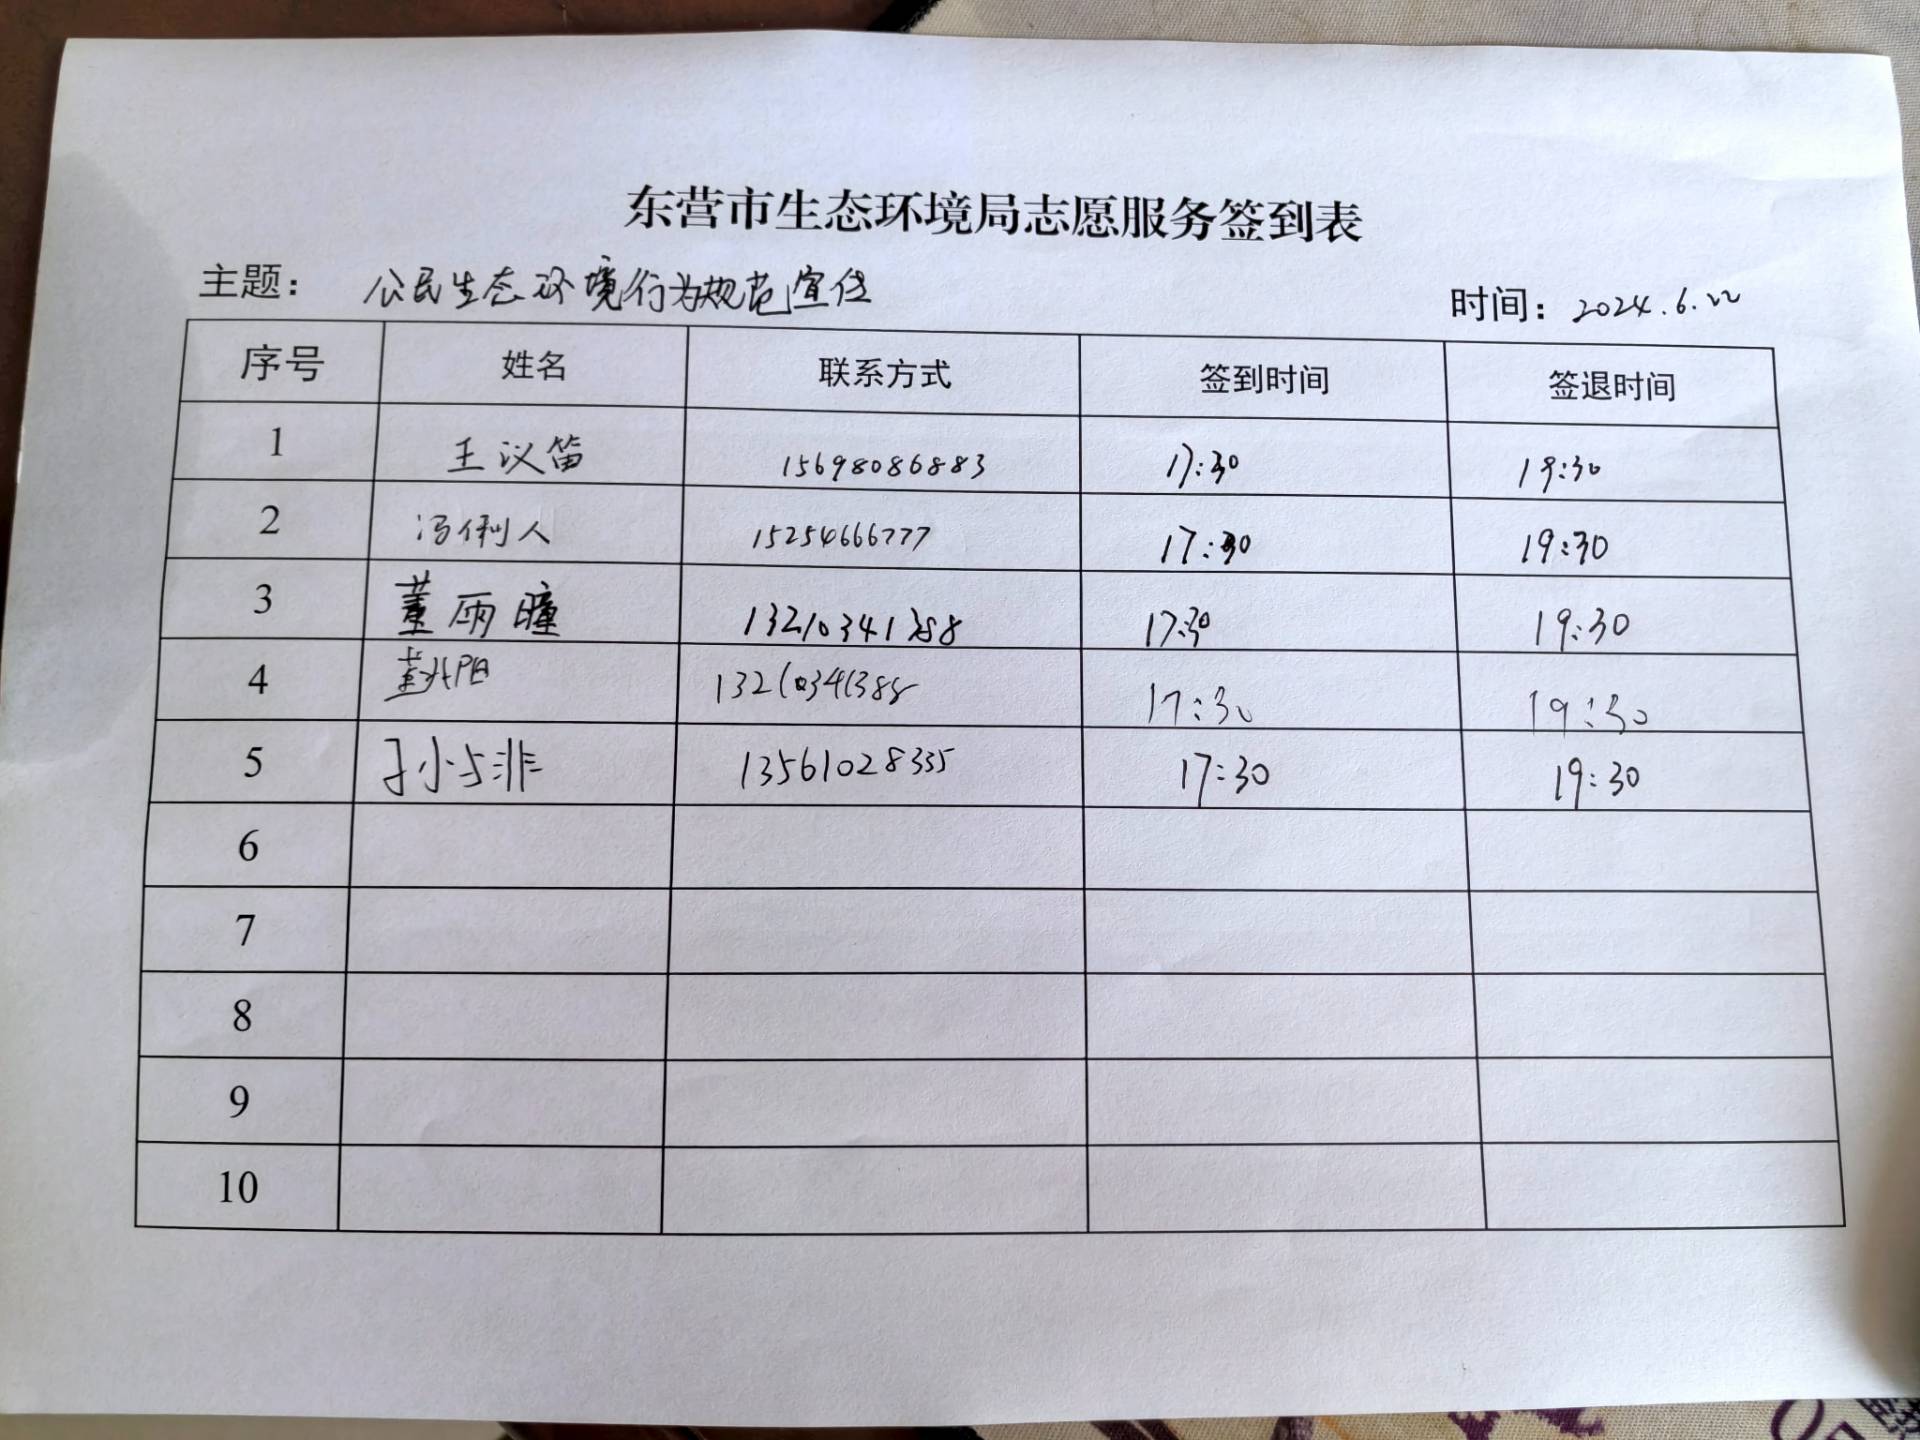 东营市生态环境局志愿服务签到表
主题： 公民生态环境行为规范宣传 时间：2024.6.22
序号 姓名 联系方式 签到时间 签退时间
1 王议笛 15698086883 17:30 19:30
2 冯俐人 15254666777 17:30 19:30
3 董雨瞳 13210341388 17:30 19:30
4 13210341388 17:30 19:30
5 13561028335 17:30 19:30
6
7
8
9
10